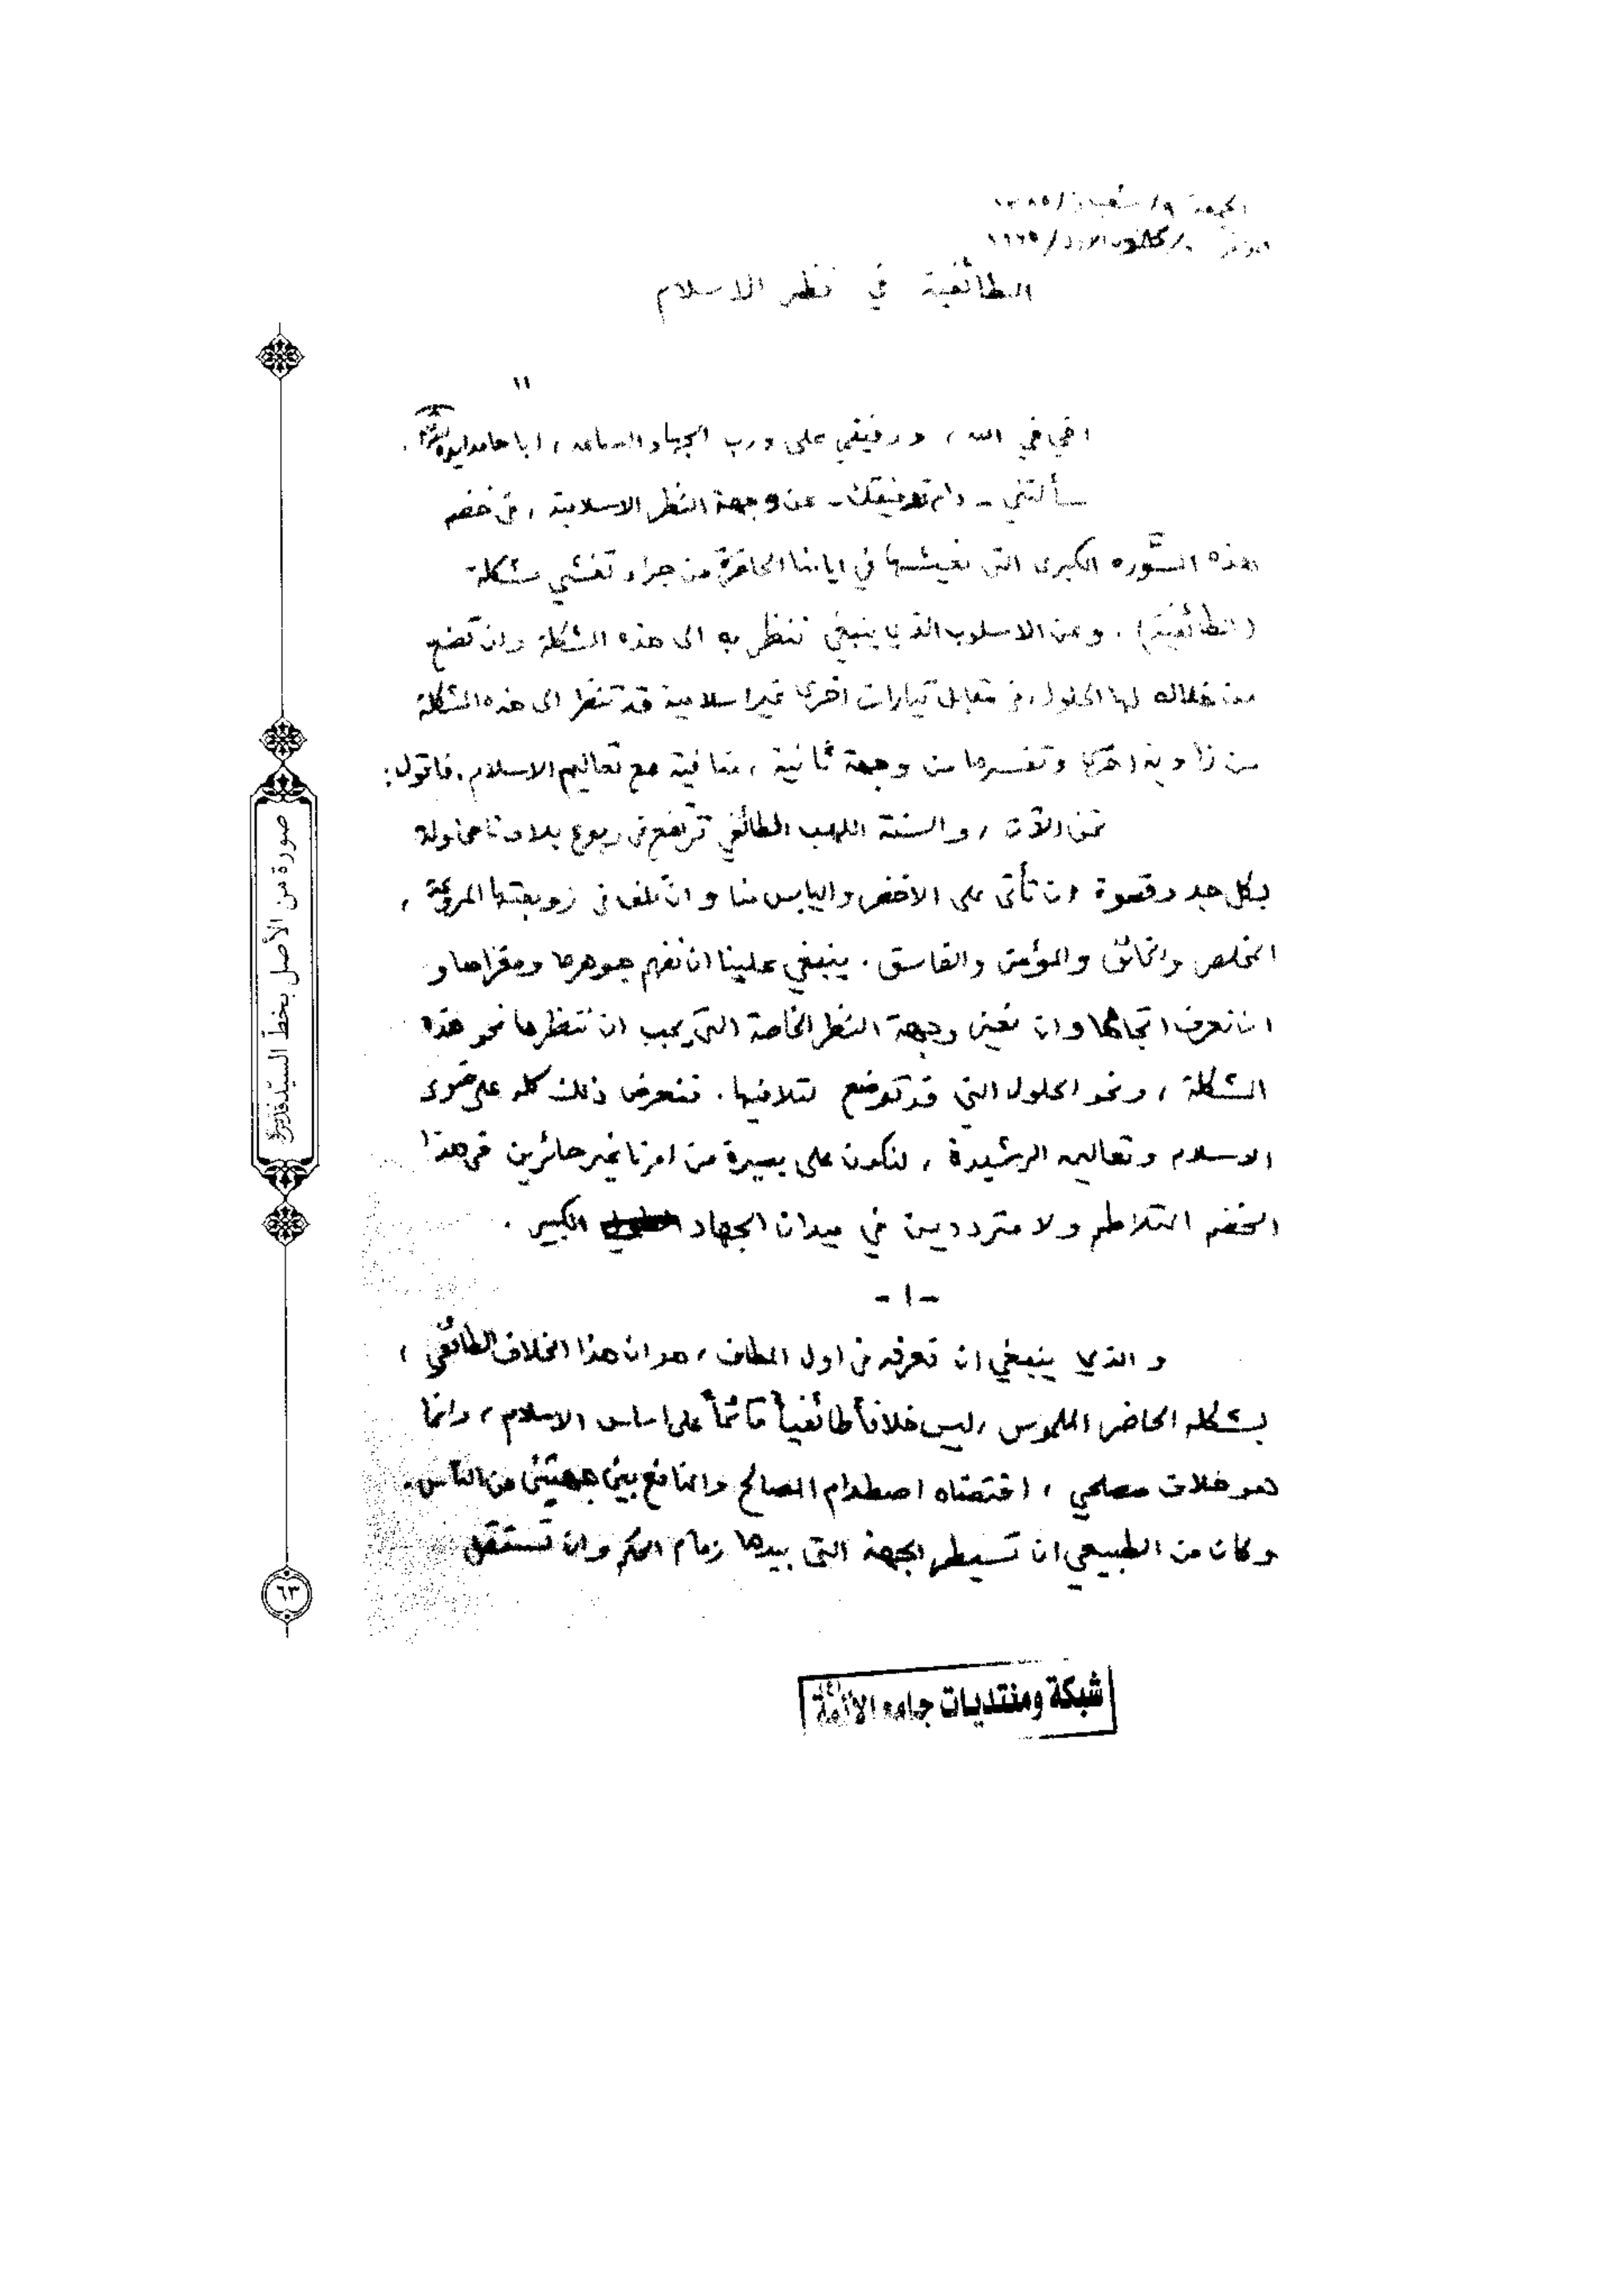 الجمعة ٩/شعبان/١٣٨٥
كانون الاول/١٩٦٥
الطائفية في نظر الاسلام
اخي في الله ، ورفيقي على درب الجهاد الصاعد ، ابا حامد ايده الله .
سألتني - دام توفيقك - عن وجهة النظر الاسلامية ، في خضم
هذه الثورة الكبرى التي نعيشها في ايامنا الحاضرة من جراء تفشي مشكلة
(الطائفية) . وعن الاسلوب الذي ينبغي ننظر به الى هذه المشكلة وان نضع
من خلاله لها الحلول ، في مقابل تيارات اخرى غير اسلامية قد تنظر الى هذه المشكلة
من زاوية اخرى وتفسرها من وجهة ثانية ، منافية مع تعاليم الاسلام . فاقول :
نحن الآن ، والسنة اللهب الطائفي ترتفع في ربوع بلادنا محاولة
بكل جد وقسوة ان تأتي على الاخضر واليابس منا وان تلف في زوبعتها المروعة ،
المخلص والخائن والمؤمن والفاسق . ينبغي علينا ان نفهم جوهرها ومغزاها و
ان نعرف اتجاهها وان نعين وجهة النظر الخاصة التي يجب ان ننظرها نحو هذه
المشكلة ، ونحو الحلول التي قد توضع لتلافيها . فنعرض ذلك كله على ضوء
الاسلام وتعاليمه الرشيدة ، لنكون على بصيرة من امرنا غير حائرين في هذا
الخضم المتلاطم ولا مترددين في ميدان الجهاد الكبير .
- ١ -
و الذي ينبغي ان نعرفه في اول المطاف ، هو ان هذا الخلاف الطائفي ،
بشكله الحاضر الملموس ، ليس خلافاً طائفياً قائماً على اساس الاسلام ، وانما
هو خلاف مصلحي ، اقتضاه اصطدام المصالح والمنافع بين جهتين من الناس .
وكان من الطبيعي ان تسيطر الجهة التي بيدها زمام الحكم وان تستغل
صورة من الأصل بخطّ السيّد
٦٣
شبكة ومنتديات جامع الأئمة